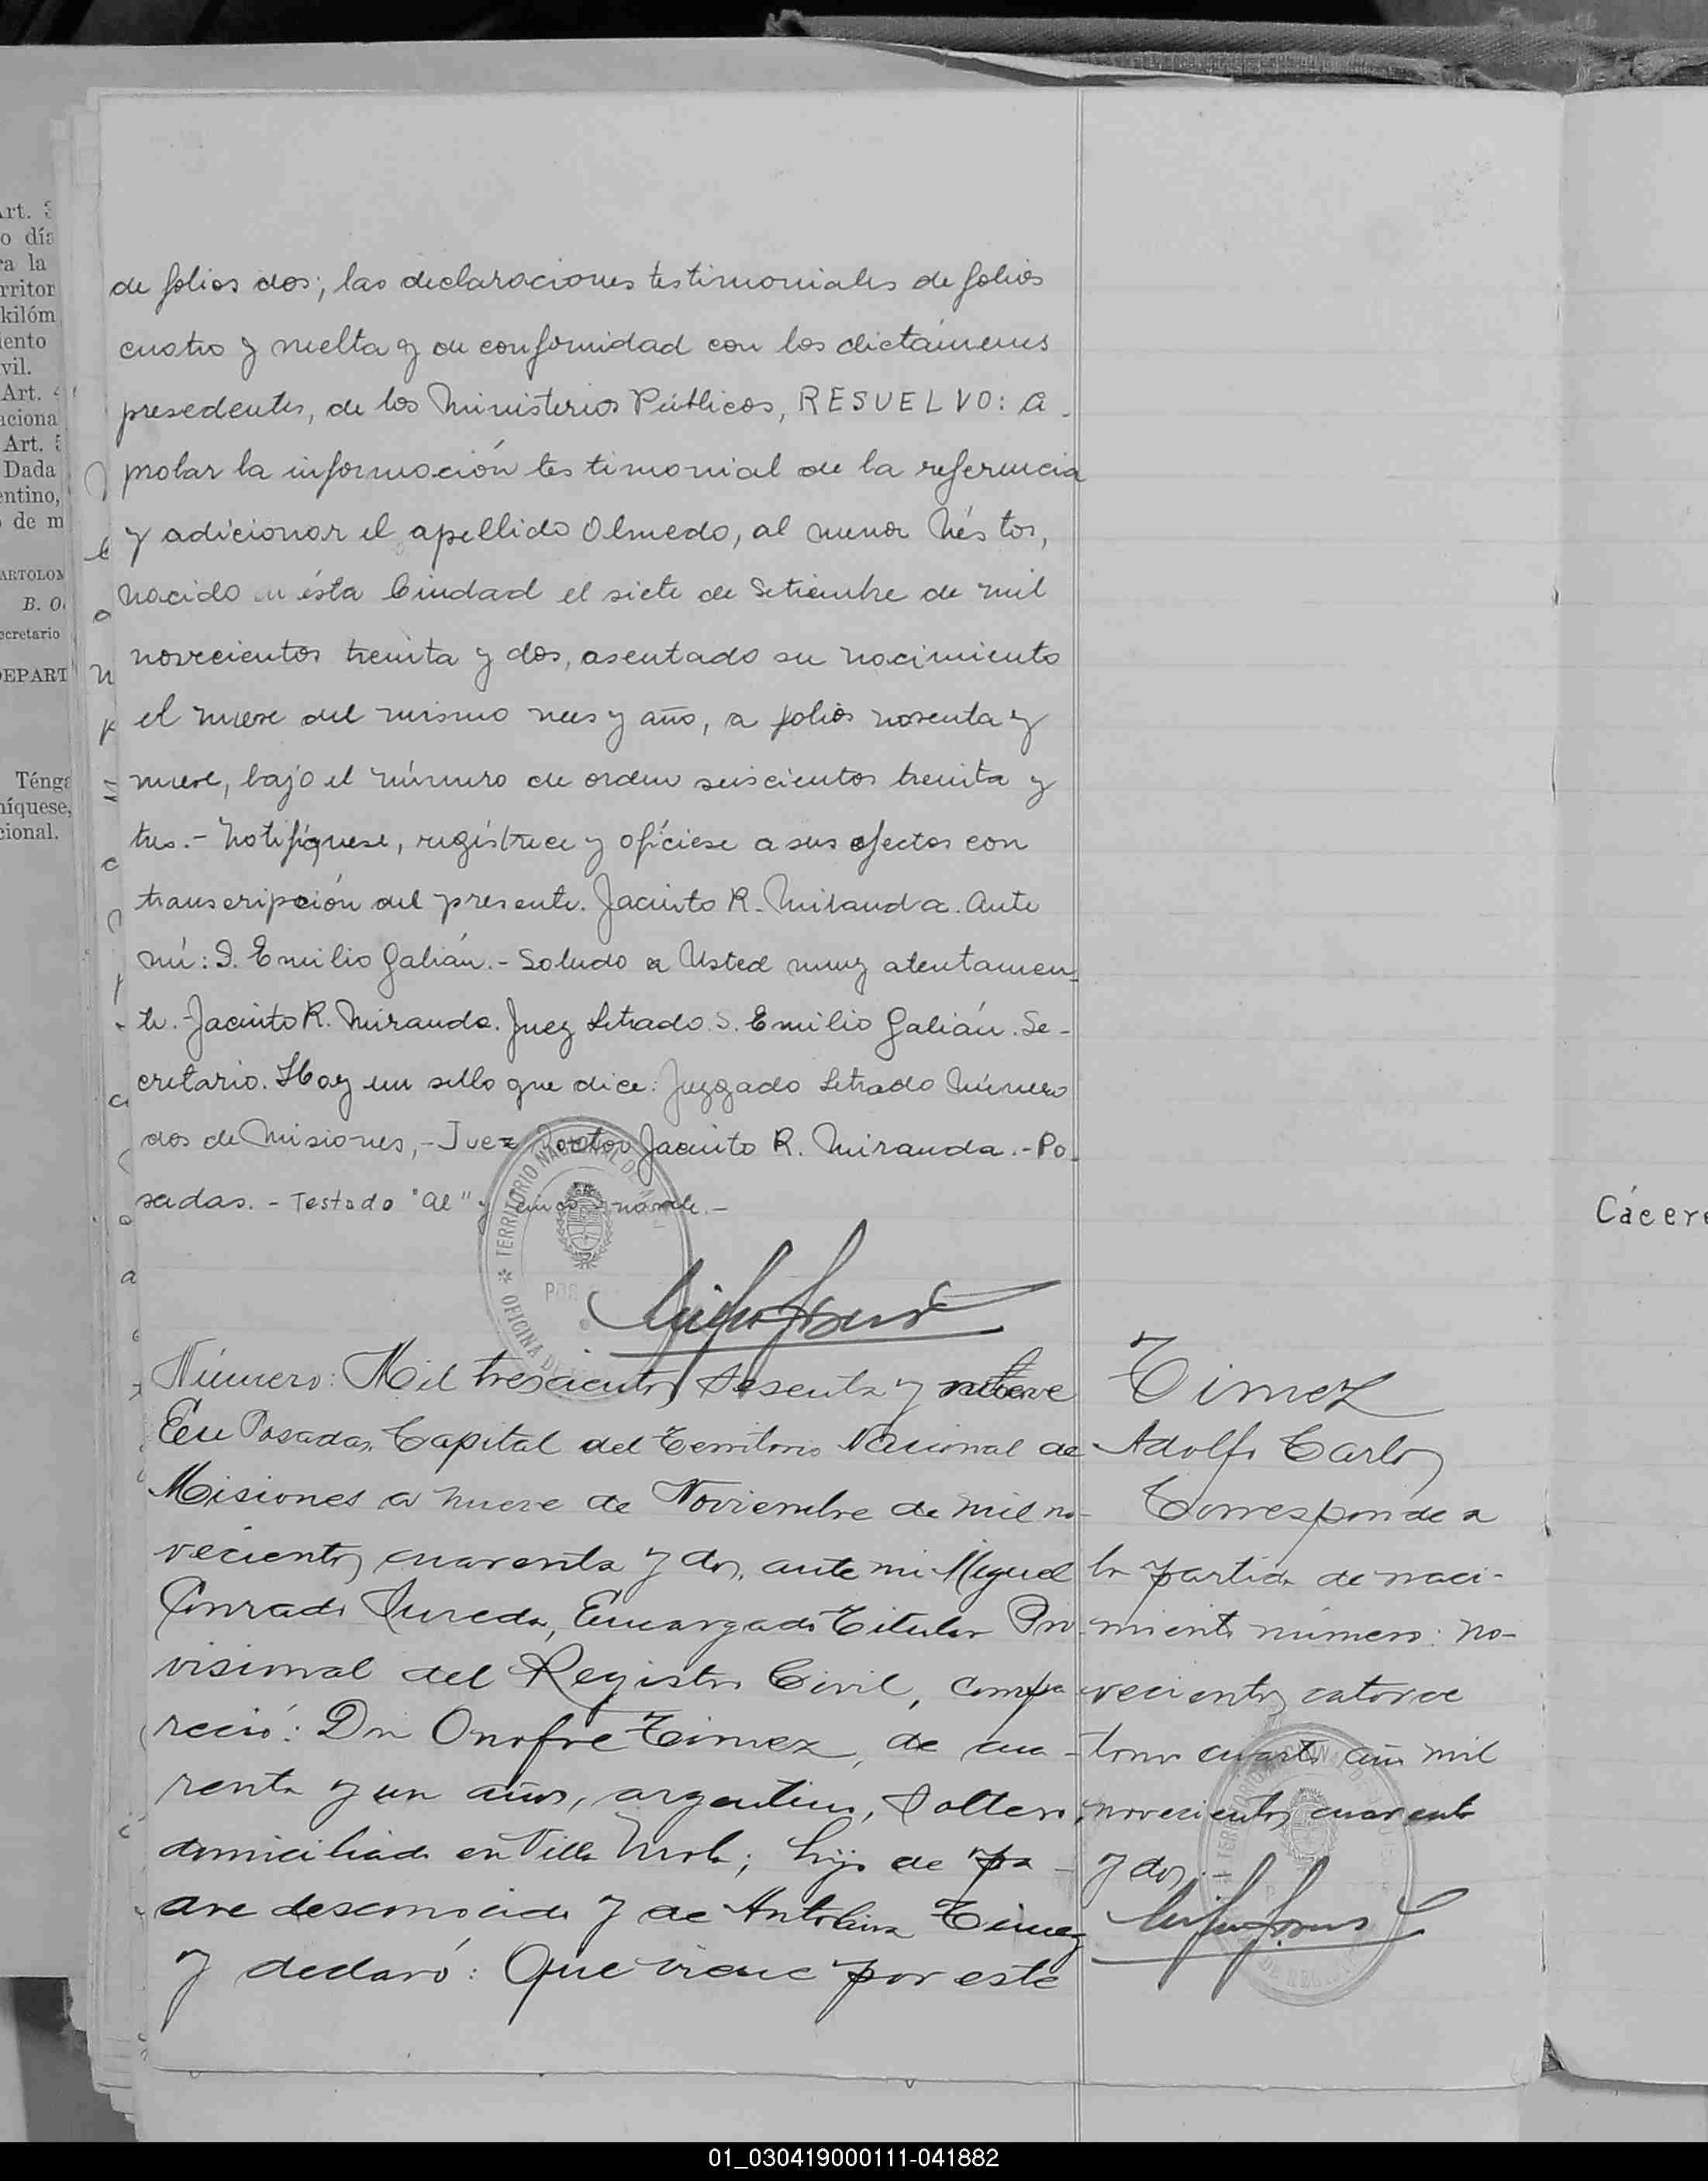 Art. 3
o día
ra la
rritor
kilóm
iento
vil.
Art. 4
aciona
Art. 5
Dada
entino,
o de m
ARTOLOM
B. O
ecretario
DEPART
Ténga
níquese,
cional.
de folios dos; las declaraciones testimoniales de folios
cuatro y vuelta y de conformidad con los dictámenes
presedentes, de los Ministerios Públicos, RESUELVO: a-
probar la información testimonial de la referencia
y adicionar el apellido Olmedo, al menor Néstor,
nacido en ésta Ciudad el siete de Setiembre de mil
novecientos treinta y dos, asentado su nacimiento
el nueve del mismo mes y año, a folios noventa y
nueve, bajo el número de orden seiscientos treinta y
tres.- Notifíquese, regístrece y ofíciese a sus efectos con
transcripción del presente. Jacinto R. Miranda. Ante
mí: S. Emilio Galián.- Saludo a Usted muy atentamen-
te.- Jacinto R. Miranda. Juez Letrado. S. Emilio Galián. Se-
cretario. Hay un sello que dice: Juzgado Letrado Número
dos de Misiones,- Juez Doctor Jacinto R. Miranda.- Po-
sadas.- Testado "al" y no vale.-
TERRITORIO NACIONAL DE
OFICINA DE
Número: Mil trescientos sesenta y nueve
En Posadas, Capital del Territorio Nacional de
Misiones a nueve de Noviembre de mil no-
vecientos cuarenta y dos, ante mi Miguel
Conrado Sureda, Encargado Titular Pro-
visional del Registro Civil, compa
reció: Don Onofre Timez, de cua-
renta y un años, argentino, soltero,
domiciliado en Villa Urole; hijo de pa-
dre desconocido y de Antolina Timez
y declaró: Que viene por este
Timez
Adolfo Carlos
Corresponde a
la partida de naci-
miento número: no-
vecientos catorce
tomo cuarto año mil
novecientos cuarenta
y dos.-
Cácere
01_030419000111-041882